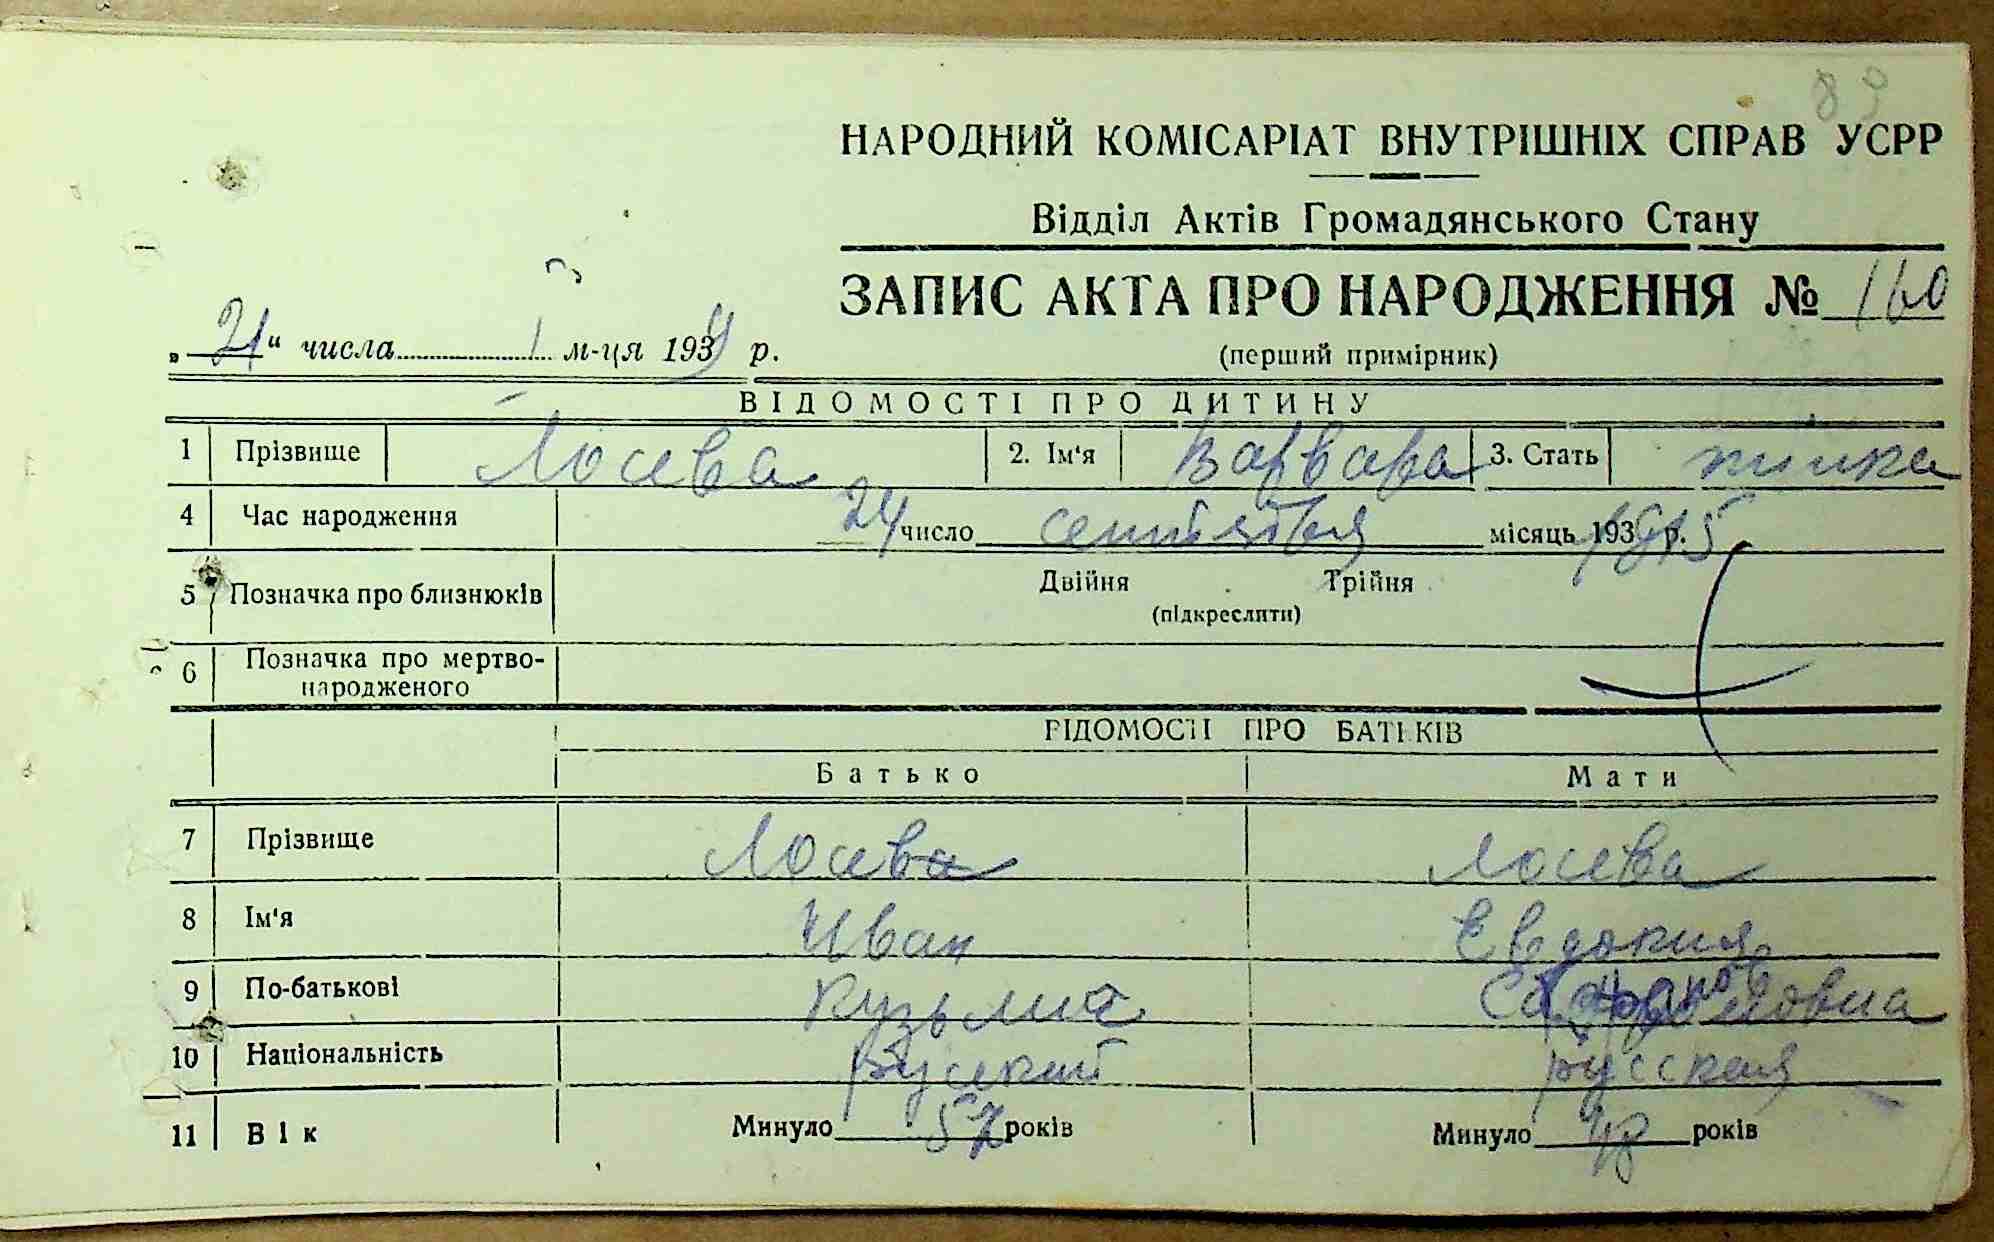 89
НАРОДНИЙ КОМІСАРІАТ ВНУТРІШНІХ СПРАВ УСРР
Відділ Актів Громадянського Стану
ЗАПИС АКТА ПРО НАРОДЖЕННЯ № 160
„ 21 “ числа 1 м-ця 1939 р.
(перший примірник)
ВІДОМОСТІ ПРО ДИТИНУ
1 Прізвище Лосева 2. Ім'я Варвара 3. Стать жінка
4 Час народження 24 число сентября місяць 193 р. 1915
5 Позначка про близнюків Двійня Трійня
(підкреслити)
6 Позначка про мертво-
народженого
ВІДОМОСТІ ПРО БАТЬКІВ
Батько Мати
7 Прізвище Лосева Лосева
8 Ім'я Иван Евдокия
9 По-батькові Кузьмич
10 Національність Руский Русская
11 Вік Минуло 57 років Минуло 48 років